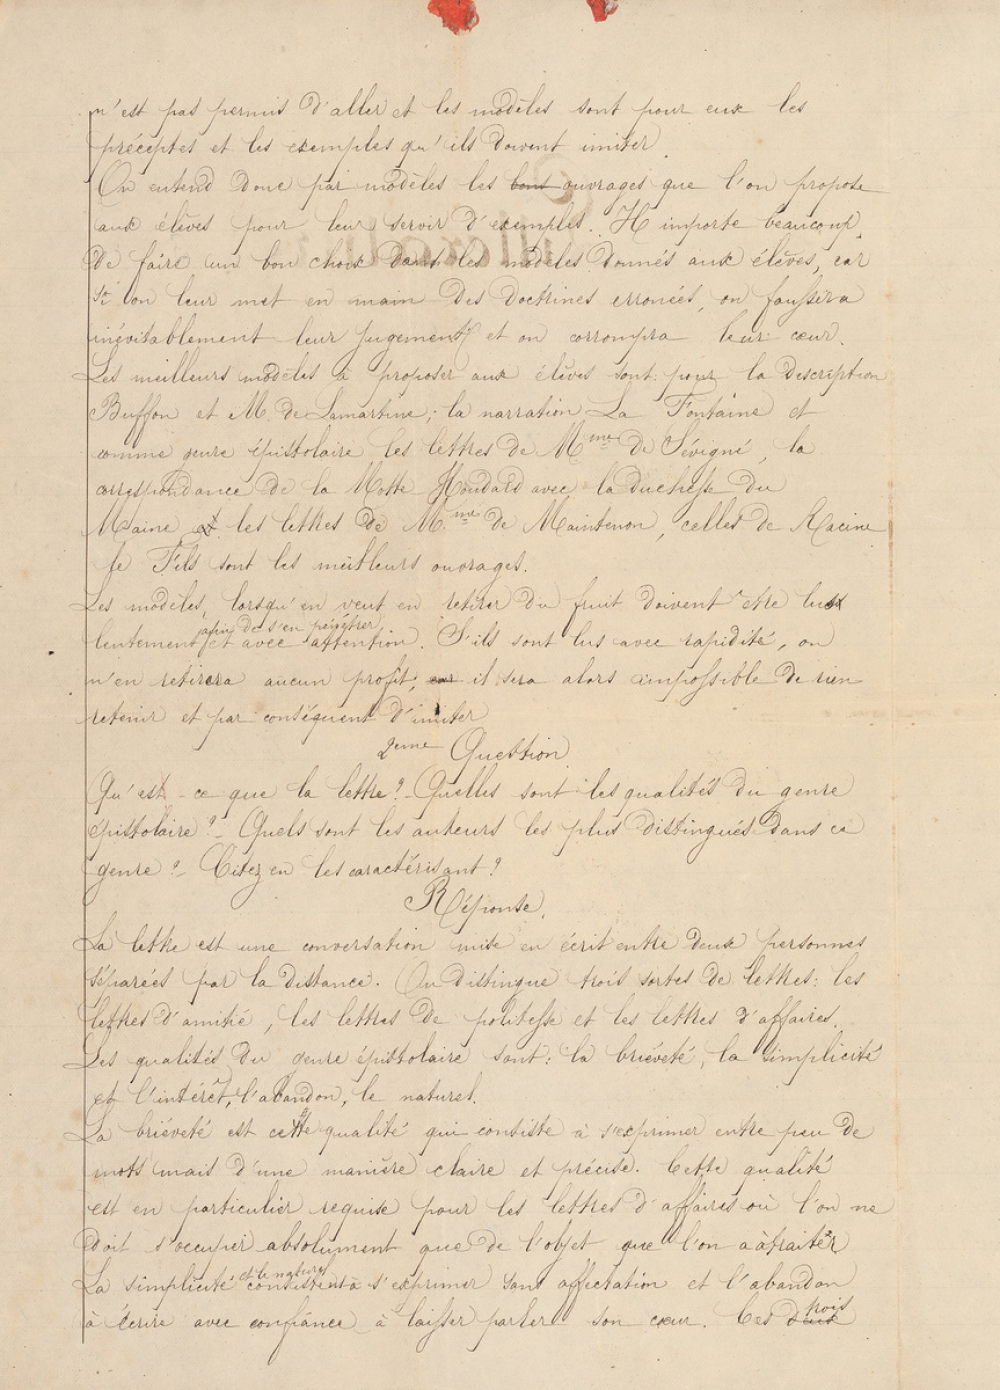 n'est pas permis d'aller et les modèles sont pour eux les
préceptes et les exemples qu'ils doivent imiter
On entend donc par modèles les bons ouvrages que l'on propose
aux élèves pour leur servir d'exemples. Il importe beaucoup
de faire un bon choix dans les modèles donnés aux élèves, car
si l'on leur met en main des doctrines erronées, on faussera
inévitablement leur jugement et on corrompra leur cœur.
Les meilleurs modèles à proposer aux élèves sont pour la description
Buffon et M. de Lamartine; la narration La Fontaine et
comme genre épistolaire les lettres de Mme de Sévigné, la
correspondance de la Motte Houdard avec la duchesse du
Maine et les lettres de Mme de Maintenon, celles de Racine
le Fils sont les meilleurs ouvrages.
Les modèles, lorsqu'on veut en retirer du fruit doivent être lus
afin de s'en pénétrer
lentement et avec attention. S'ils sont lus avec rapidité, on
n'en retirera aucun profit, car il sera alors impossible de rien
retenir et par conséquent d'imiter
2eme Question
Qu'est-ce que la lettre? - Quelles sont les qualités du genre
épistolaire? - Quels sont les auteurs les plus distingués dans ce
genre? - Citez en les caractérisant?
Réponse.
La lettre est une conversation mise en écrit entre deux personnes
séparées par la distance. On distingue trois sortes de lettres: les
lettres d'amitié, les lettres de politesse et les lettres d'affaires.
Les qualités du genre épistolaire sont: la briéveté, la simplicité
et l'intérêt, l'abandon, le naturel.
La briéveté est cette qualité qui consiste à s'exprimer entre peu de
mots mais d'une manière claire et précise. Cette qualité
est en particulier requise pour les lettres d'affaires où l'on ne
doit s'occuper absolument que de l'objet que l'on a à traiter
et le naturel
La simplicité consistent à s'exprimer sans affectation et l'abandon
trois
à écrire avec confiance à laisser parler son cœur. Ces deux